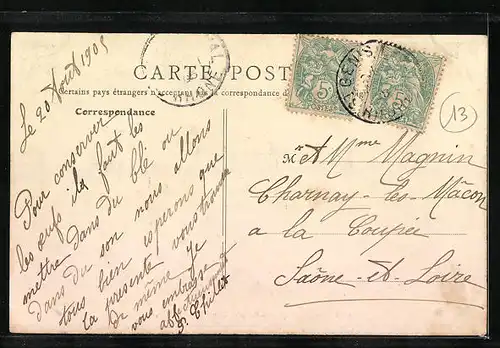 CARTE POST
Certains pays étrangers n'acceptant pas la correspondance d
Correspondance
Le 20 Aout 1905
Pour conserver
les œufs il faut les
mettre dans du blé ou
dans du son nous allons
tous bien esperons que
la presente vous trouve
de même je
vous embrasse
affectueusement
M et Mme Magnin
Charnay-les-Mâcon
a la Coupée
Saône-et-Loire
5c
POSTES
RHONE
13